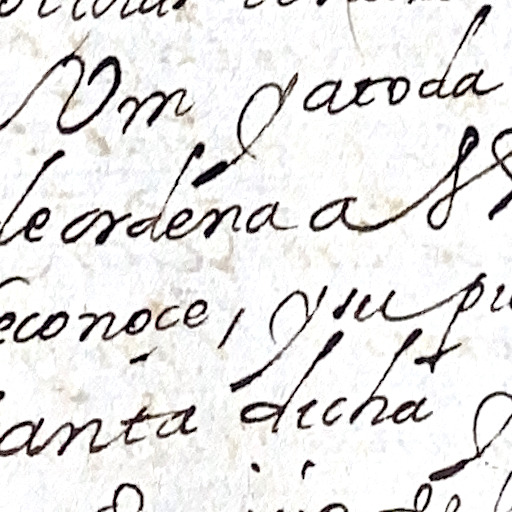 Vm y atoda
le ordena a S
econoce, y su pu
anta dicha y